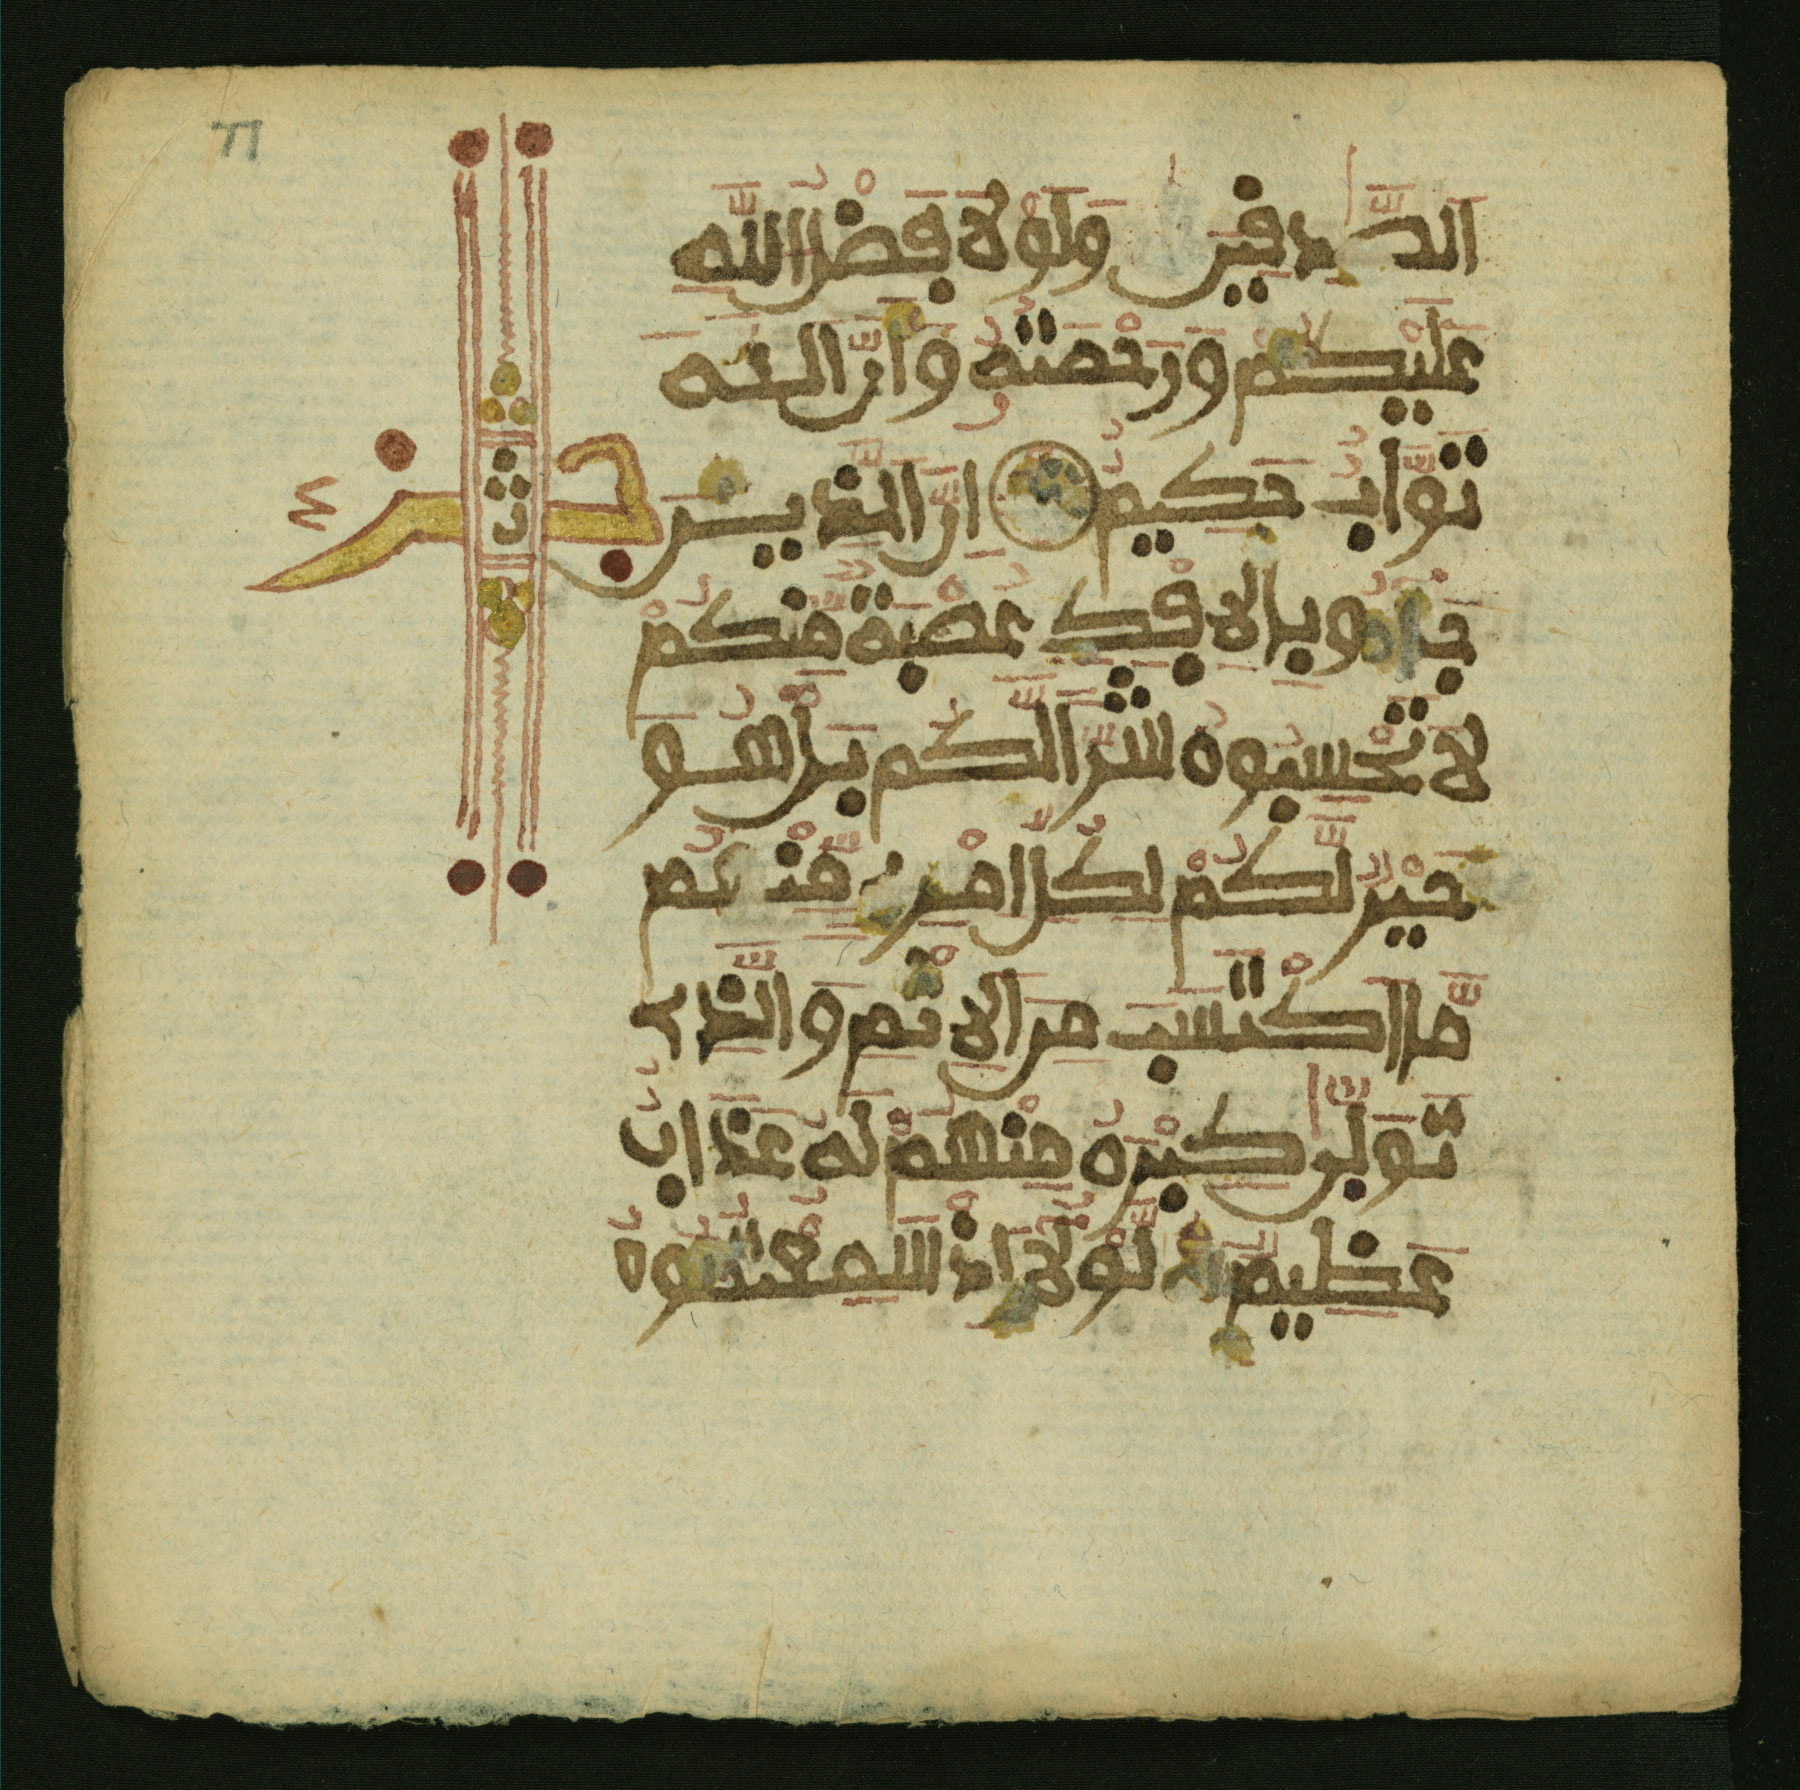 الصدقين ولولا فضل الله
عليكم ورحمته وان الله
تواب حكيم ان الذين
حزب
جاءو بالافك عصبة منكم
لا تحسبوه شرا لكم بل هو
خير لكم لكل امرئ منهم
ما اكتسب من الاثم والذي
تولى كبره منهم له عذاب
عظيم لولا اذ سمعتموه